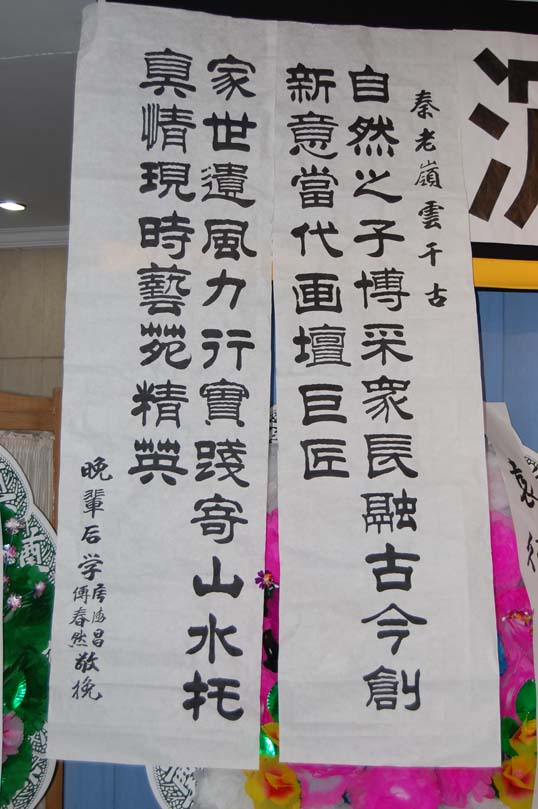 秦老嶺雲千古
自然之子博采衆長融古今創
新意當代画壇巨匠
家世遺風力行實踐寄山水托
真情現時藝苑精英
晚輩后学
海昌
傅春然
敬挽